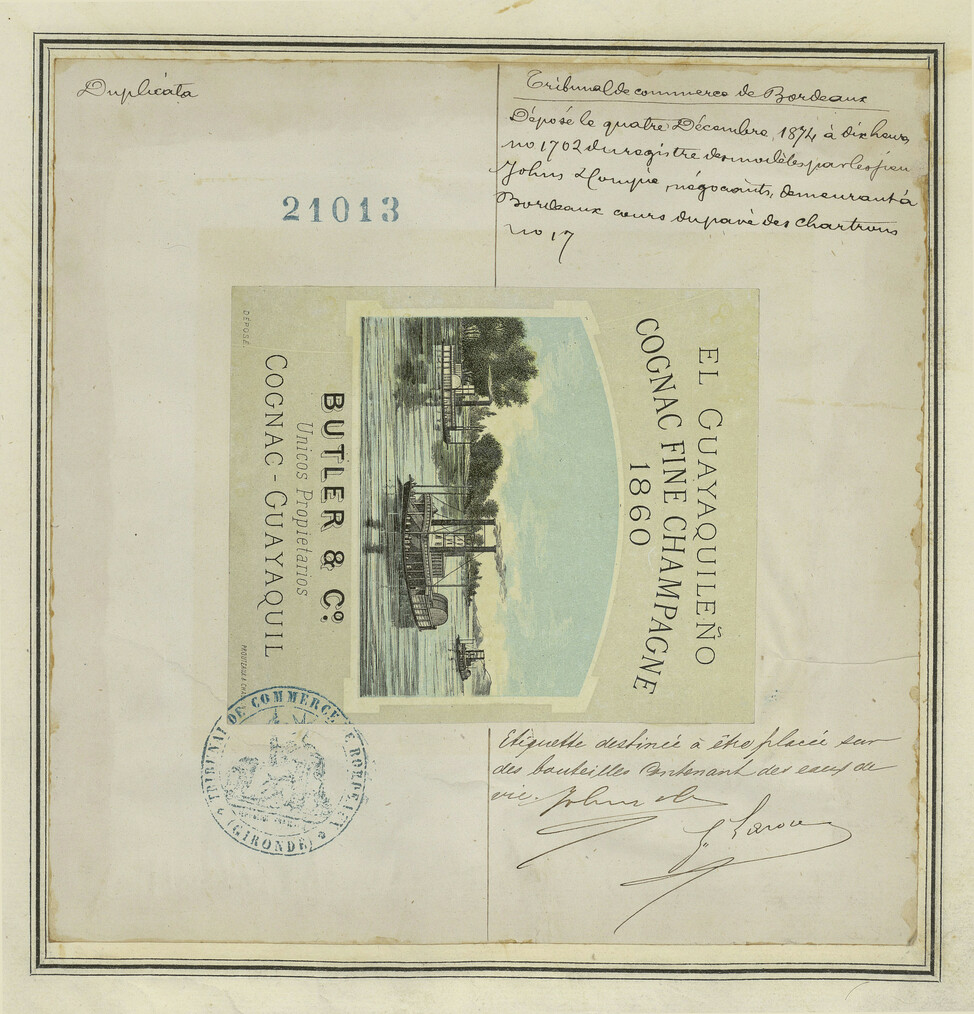 Duplicata
Tribunal de commerce de Bordeaux
Déposé le quatre Décembre 1874 à dix heures
no 1702 du registre des modèles par les sieurs
Johns négociants, demeurant à
Bordeaux cours du pavé des Chartrons
no 17
21013
EL GUAYAQUILEÑO
COGNAC FINE CHAMPAGNE
1860
BUTLER & Cº.
Unicos Propietarios
COGNAC - GUAYAQUIL
DÉPOSÉ
TRIBUNAL DE COMMERCE DE BORDEAUX
(GIRONDE)
Etiquette destinée à être placée sur
des bouteilles contenant des eaux de
vie.